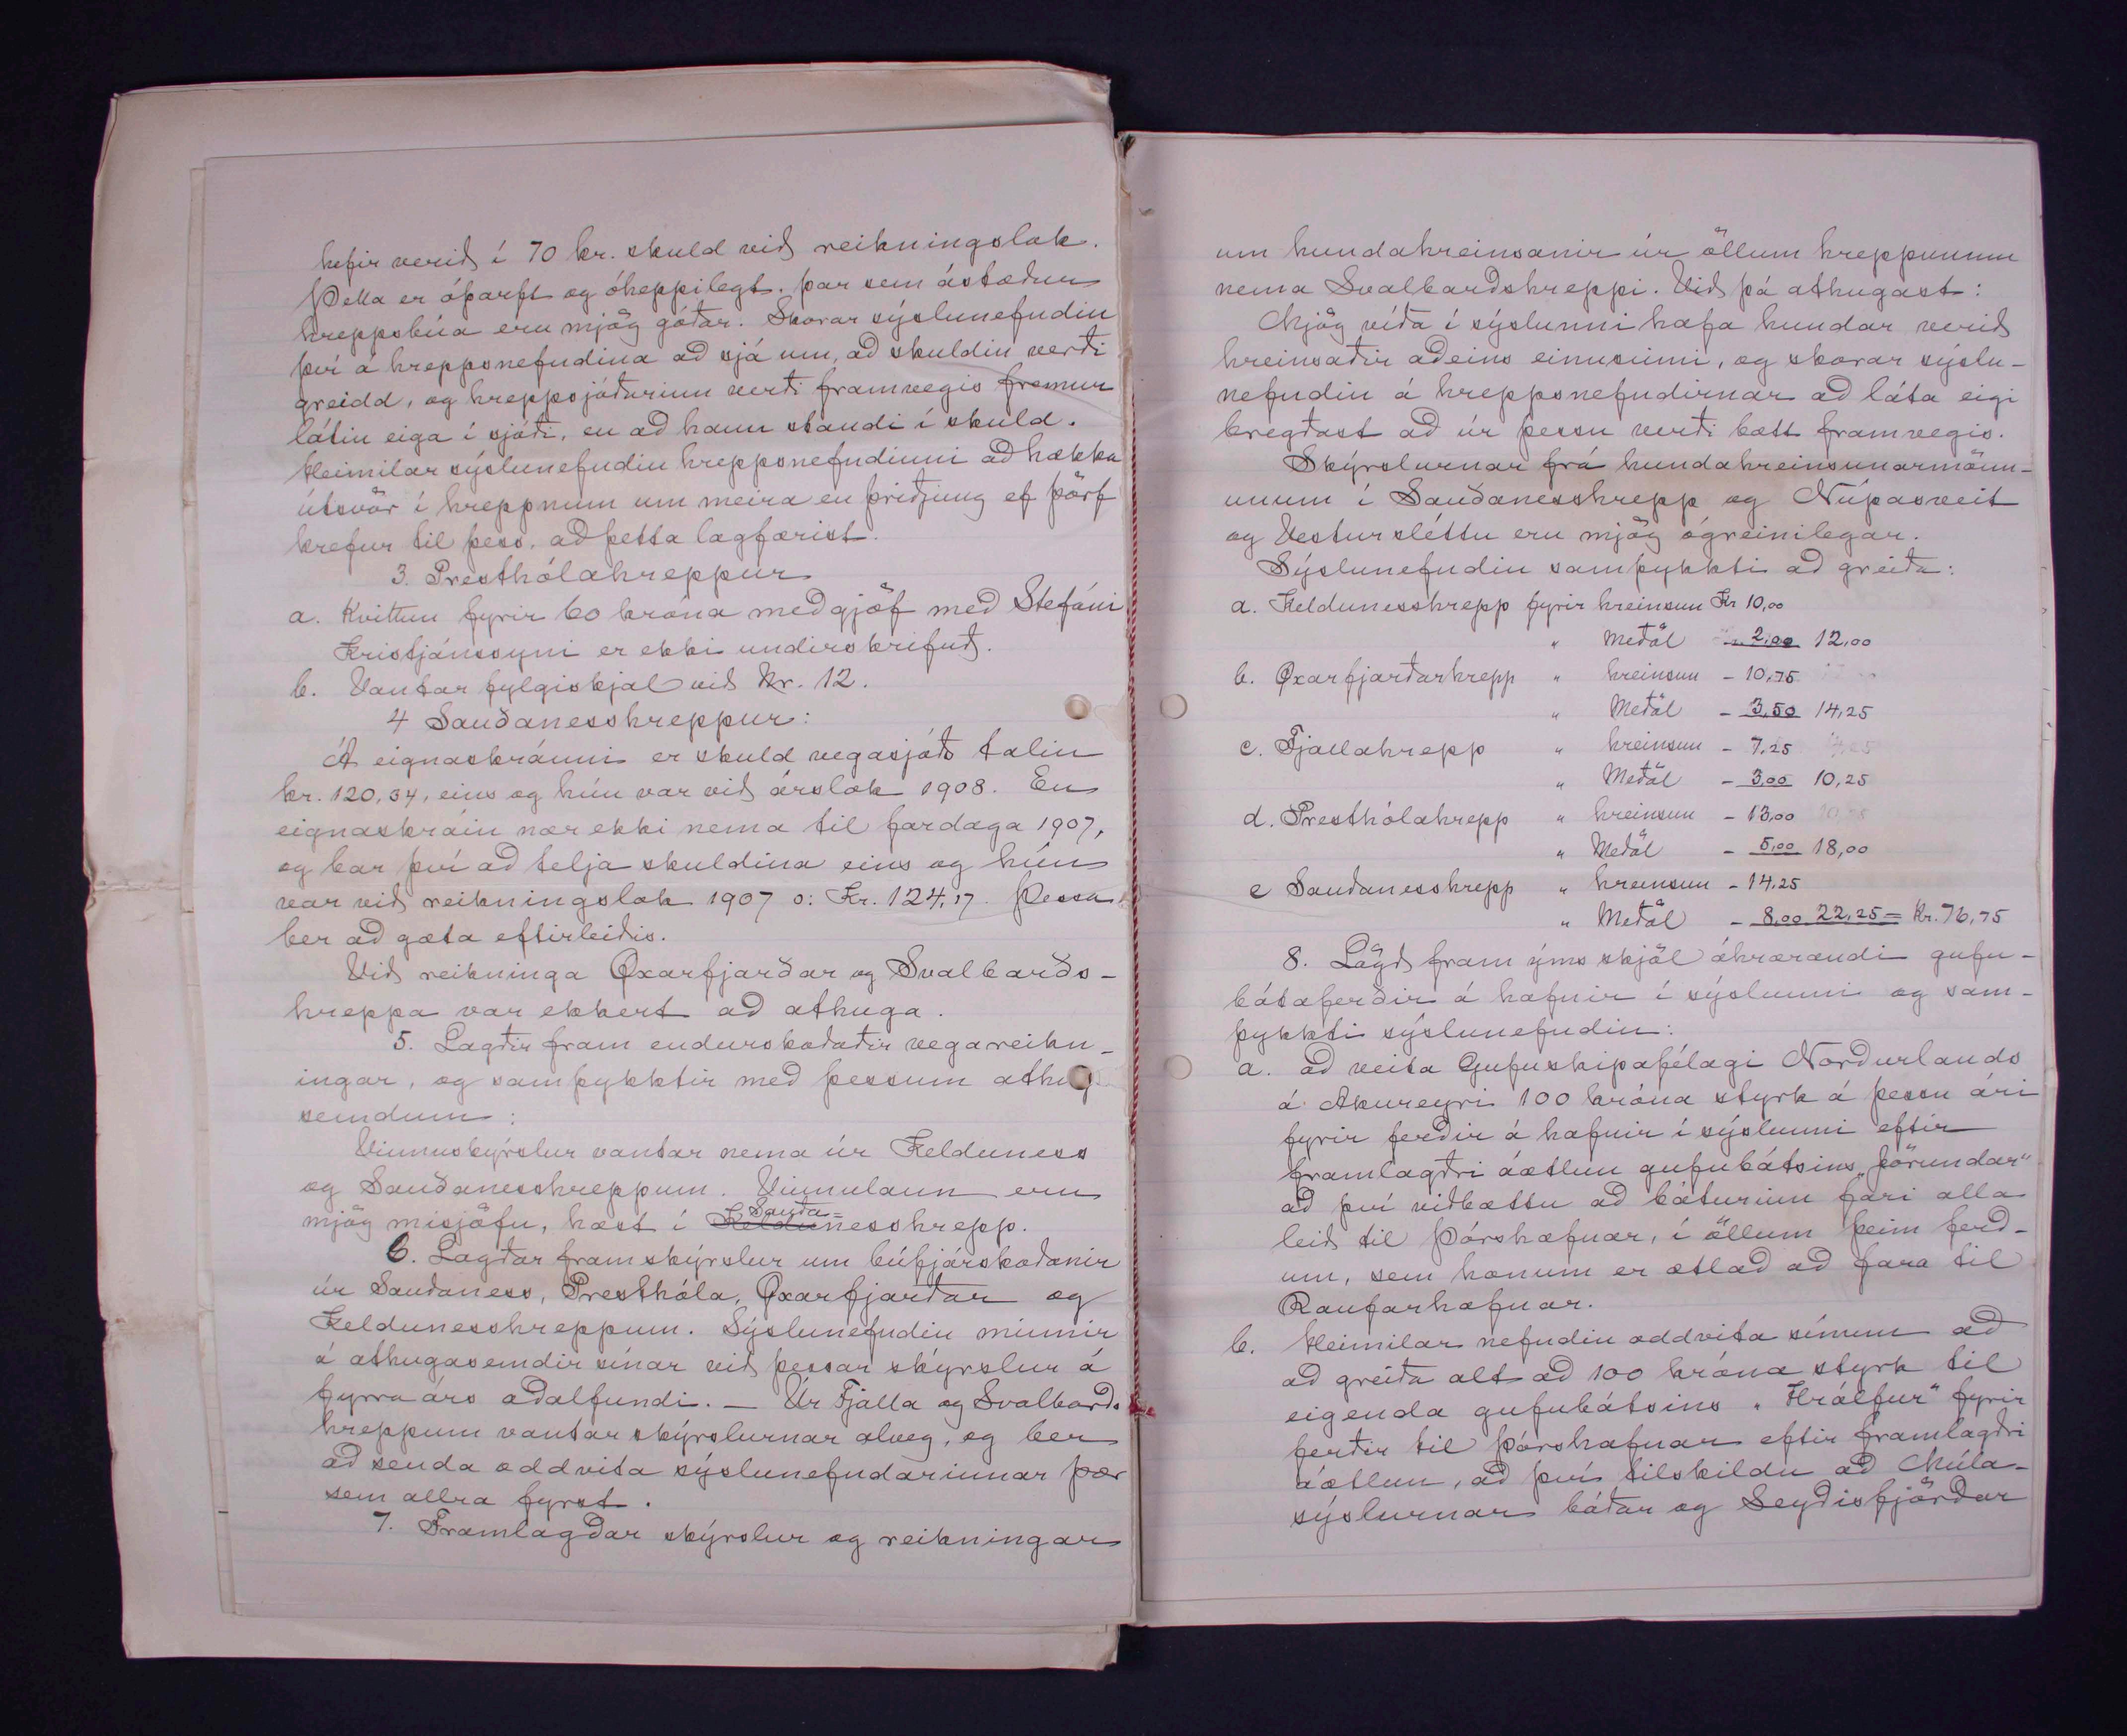 hefir verið í 70 kr. skuld við reikningslok.
Þetta er óþarft og óheppilegt, þar sem ástæður
hreppsbúa eru mjög góðar. Skorar sýslunefndin
því á hreppsnefndina að sjá um, að skuldin verði
greidd, og hreppsjóðurinn verði framvegis fremur
látin eiga í sjóði, en að hann standi í skuld.
Heimilar sýslunefndin hreppsnefndinni að hækka
útsvör í hreppnum um meira en þriðjung ef þörf
krefur til þess, að þetta lagfærist.
3. Presthólahreppur
a. Kvittun fyrir 60 króna meðgjöf með Stefáni
Kristjánssyni er ekki undirskrifuð.
b. Vantar fylgiskjal við Nr. 12.
4 Sauðanesshreppur:
Á eignaskránni er skuld vegasjóðs talin
kr. 120,34, eins og hún var við árslok 1908. En
eignaskráin nær ekki nema til fardaga 1907,
og bar því að telja skuldina eins og hún
var við reikningslok 1907 ɔ: Kr. 124,17. Þessa
ber að gæta eftirleiðis.
Við reikninga Öxarfjarðar og Svalbarðs-
hreppa var ekkert að athuga.
5. Lagðir fram endurskoðaðir vegareikn-
ingar, og samþykktir með þessum athug
semdum:
Vinnuskýrslur vantar nema úr Kelduness
og Sauðanesshreppum. Vinnulaun eru
Sauða=
mjög misjöfn, hæst í Keldunesshrepp.
6. Lagðar fram skýrslur um búfjárskoðanir
úr Sauðaness, Presthóla, Öxarfjarðar og
Keldunesshreppum. Sýslunefndin minnir
á athugasemdir sínar við þessar skýrslur á
fyrra árs aðalfundi. – Úr Fjalla og Svalbarðs
hreppum vantar skýrslurnar alveg, og ber
að senda oddvita sýslunefndarinnar þær
sem allra fyrst.
7. Framlagðar skýrslur og reikningar
um hundahreinsanir úr öllum hreppunum
nema Svalbarðshreppi. Við þá athugast:
Mjög víða í sýslunni hafa hundar verið
hreinsaðir aðeins einusinni, og skorar sýslu-
nefndin á hreppsnefndirnar að láta eigi
bregðast að úr þessu verði bætt framvegis.
Skýrslurnar frá hundahreinsunarmönn-
unum í Sauðanesshrepp og Núpasveit
og Vestursléttu eru mjög ógreinilegar.
Sýslunefndin samþykkti að greiða:
a. Keldunesshrepp fyrir hreinsun Kr 10,00
" Meðöl - 2,00 12,00
b. Öxarfjarðarhrepp " hreinsun - 10,75
" Meðöl - 3,50 14,25
c. Fjallahrepp " hreinsun - 7,25
" Meðöl - 3,00 10,25
d. Presthólahrepp " hreinsun - 13,00
" Meðöl - 5,00 18,00
e Sauðanesshrepp " hreinsun - 14,25
" Meðöl - 8,00 22,25 = Kr. 76,75
8. Lögð fram ýms skjöl áhrærandi gufu-
bátaferðir á hafnir í sýslunni og sam-
þykkti sýslunefndin:
a. að veita Gufuskipafélagi Norðurlands
á Akureyri 100 króna styrk á þessu ári
fyrir ferðir á hafnir í sýslunni eftir
framlagðri áætlun gufubátsins „Jörundar"
að því viðbættu að báturinn fari alla
leið til Þórshafnar, í öllum þeim ferð-
um, sem honum er ætlað að fara til
Raufarhafnar.
b. Heimilar nefndin oddvita sínum að
að greiða alt að 100 króna styrk til
eigenda gufubátsins „Hrólfur" fyrir
ferðir til Þórshafnar eftir framlagðri
áætlun, að því tilskildu að Múla-
sýslurnar báðar og Seyðisfjörður